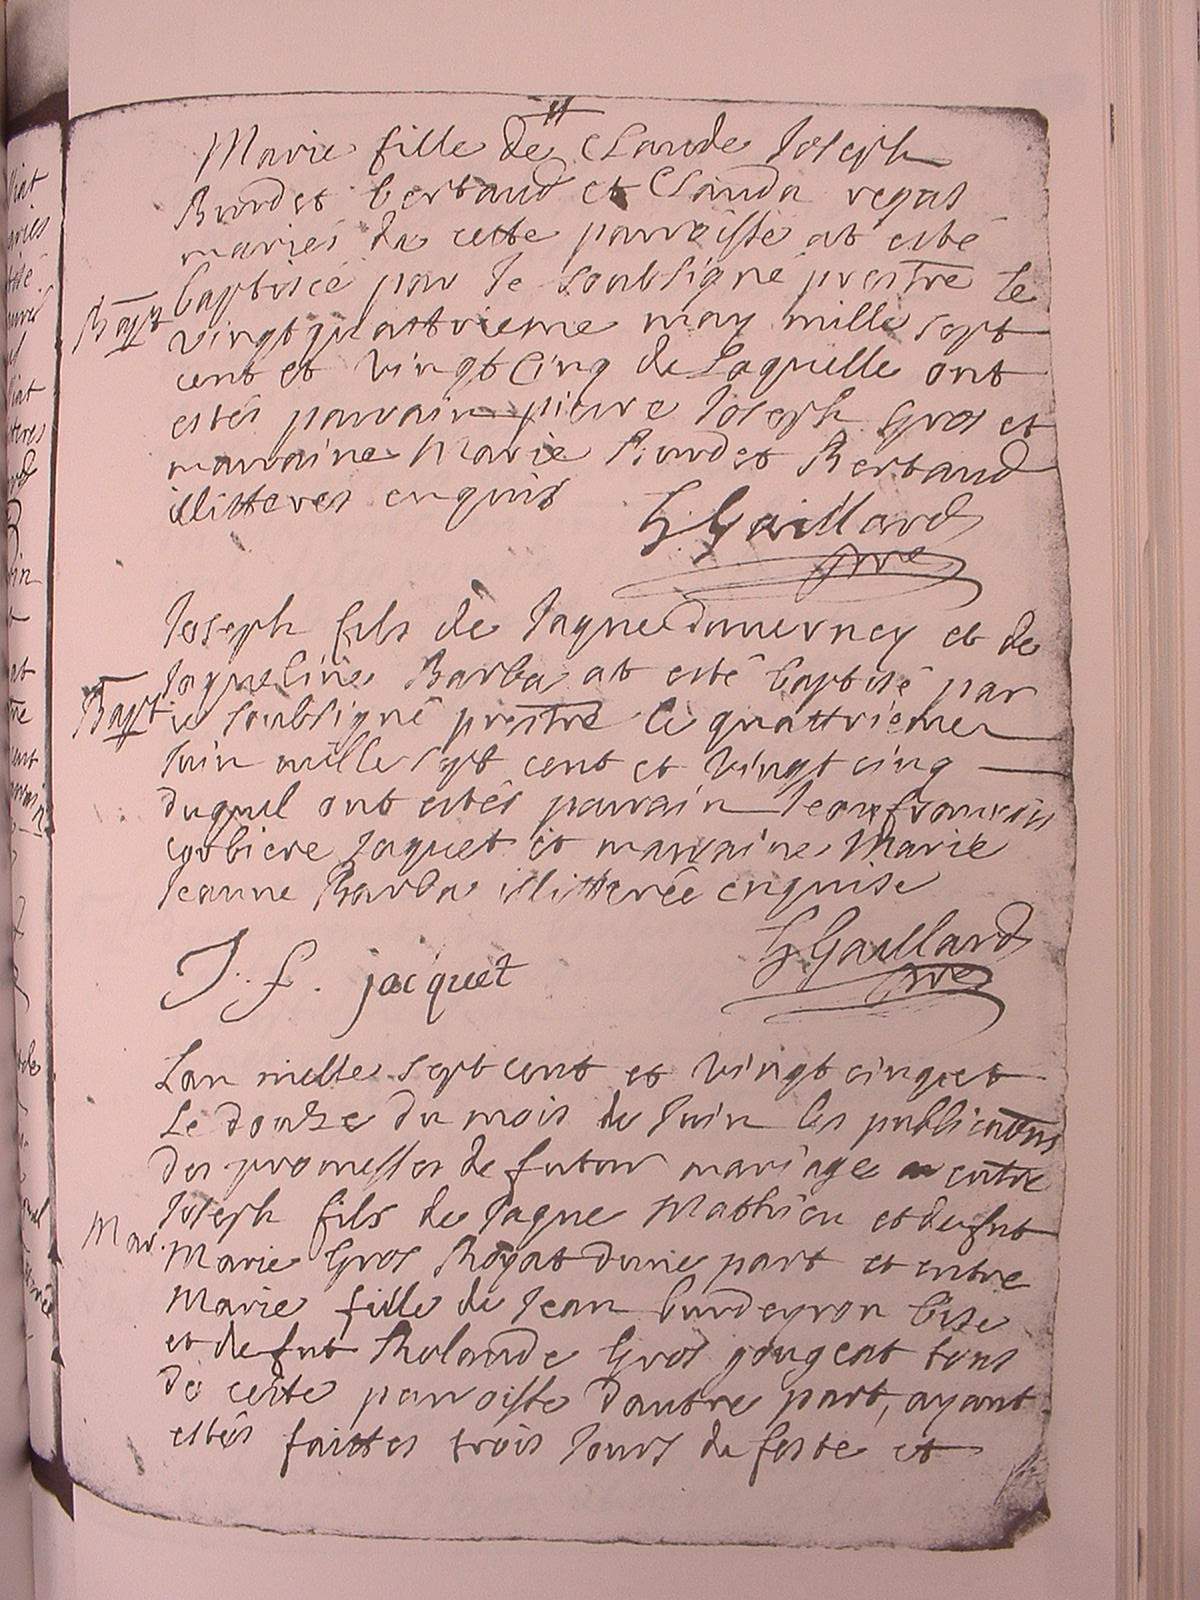 Marie fille de Claude Joseph
Burdet bertaud et Clauda regat
mariés de cette parroisse at esté
Bapt baptiséé par le soubsigné prestre le
vingtquattrieme may mille sept
cent et vingt cinq de laquelle ont
estés parrain pierre Joseph Gros et
marraine Marie Burdet Bertaud
illitteres enquis
Gaillard
pre
Joseph fils de Jaque duverney et de
Jaqueline Barba at esté baptisé par
Bapt. le soubsigné prestre le quattrieme
Juin mille sept cent et vingt cinq
duquel ont estés parrain Jean francois
Jaquet et marraine Marie
Jeanne Barba illitterée enquise
J. f. jacquet
Gaillard
pre
Lan mille sept cent et vingt cinq et
Le douze du mois de Juin les publications
des promesses de futur mariage entre
Joseph fils de Jaque Mathieu et defut
Mar. Marie Gros Royat dune part et entre
Marie fille de Jean burdeyron
et defut Rolande Gros tous
de cette parroisse dautre part, ayant
estés faittes trois Jours de feste et